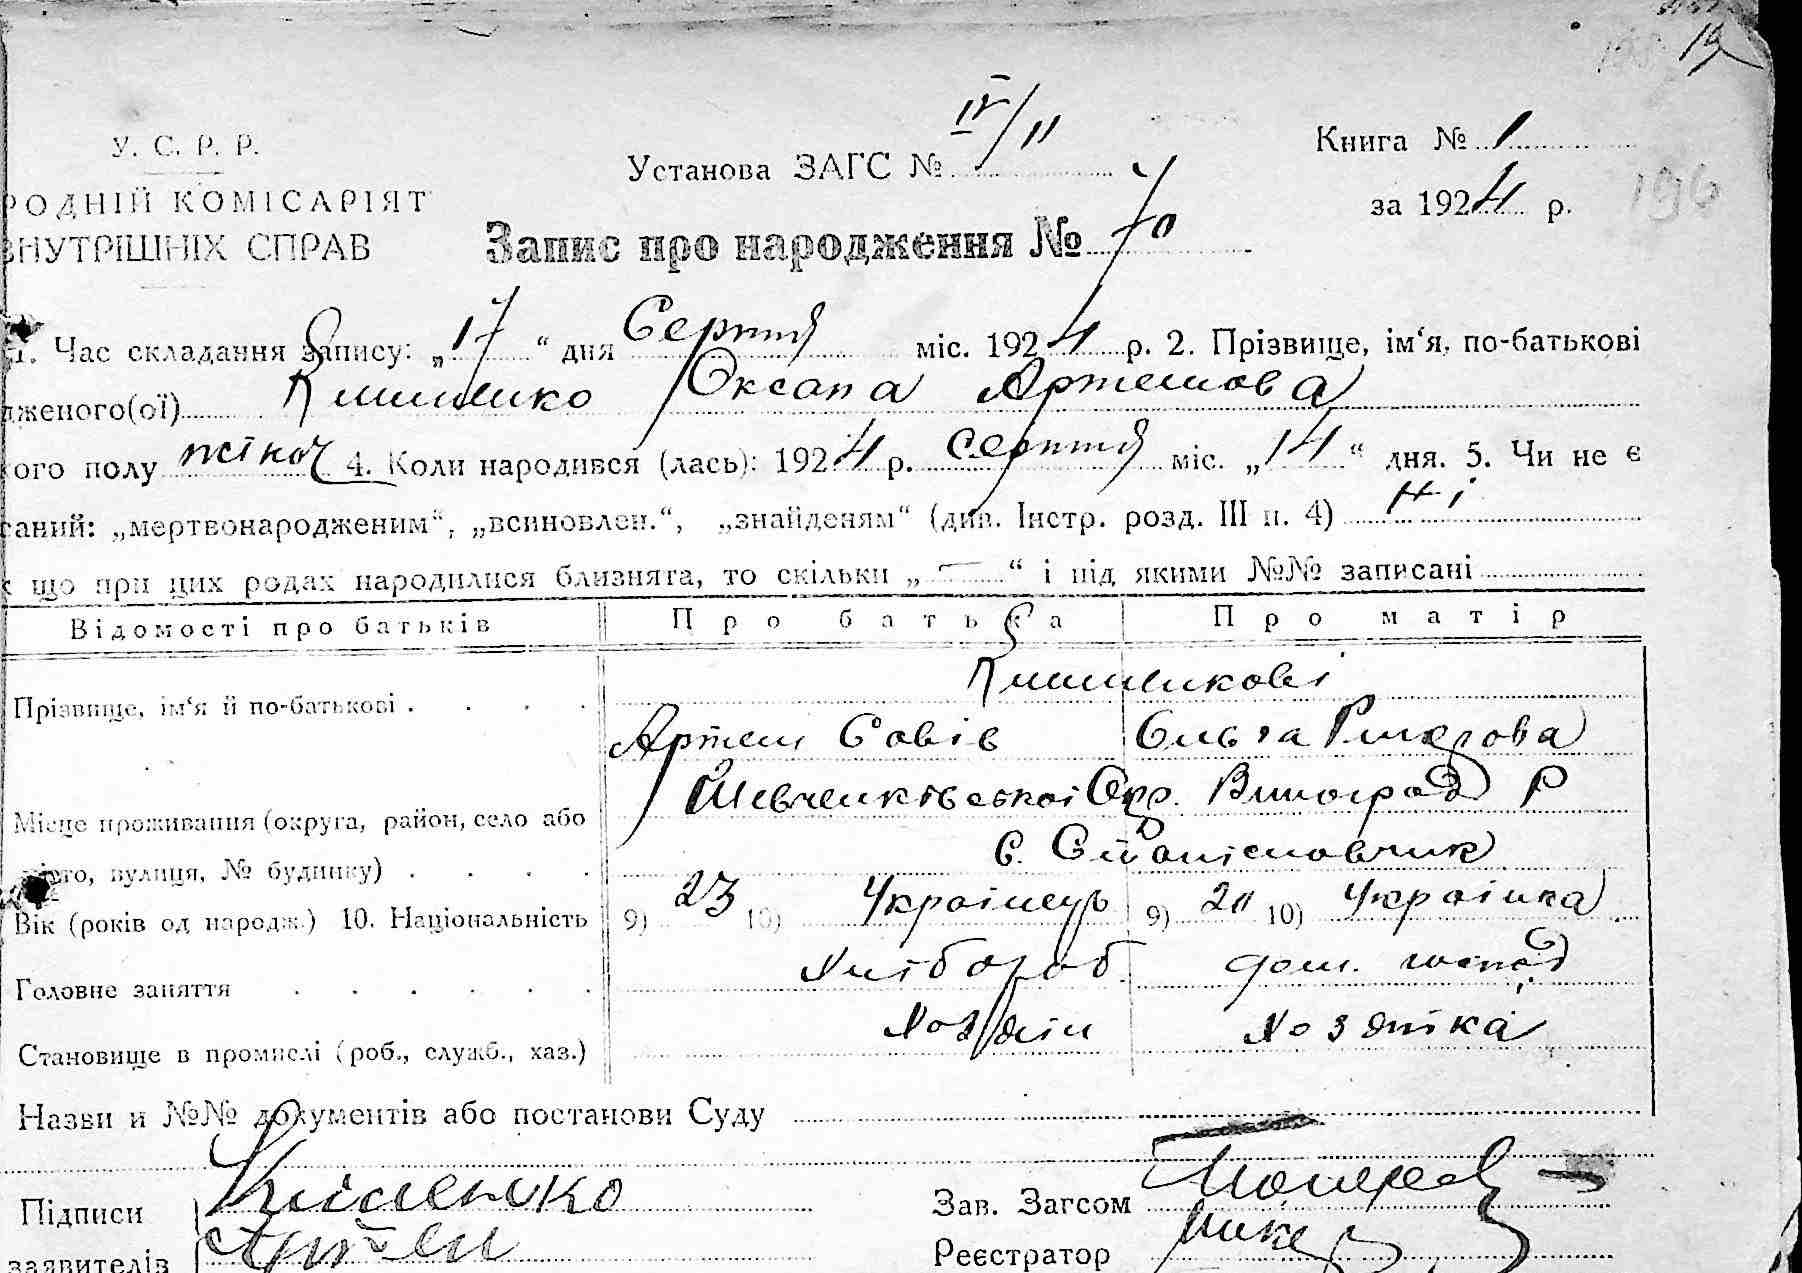 19
196
У. С. Р. Р.
РОДНІЙ КОМІСАРІЯТ
ВНУТРІШНІХ СПРАВ
Установа ЗАГС № IV/11
Книга № 1
за 1924 р.
Запис про народження № 70
1. Час складання запису: „17“ дня Серпня міс. 1924 р. 2. Прізвище, ім‘я, по-батькові
дженого(ої) Оксана Артемова
кого полу жіноч 4. Коли народився (лась): 1924 р. Серпня міс. „14“ дня. 5. Чи не є
саний: „мертвонародженим“, „всиновлен.“, „знайденям“ (див. Інстр. розд. III п. 4) Ні
к що при цих родах народилися близнята, то скільки „—“ і під якими №№ записані
Відомості про батьків Про батька Про матір
Прізвище, ім‘я й по-батькові . . . .
Артем Савів Ольга
Місце проживання (округа, район, село або
Шевченківської Окр. Виноград Р
місто, вулиця, № будинку) . . . .
с. Станіславчик
Вік (років од народж.) 10. Національність 9) 23 10) Українець 9) 20 10) Українка
Головне заняття . . . . . . Хлібороб дом. господ
Становище в промислі (роб., служб., хаз.) Хозяїн Хозяйка
Назви и №№ документів або постанови Суду
Підписи
заявителів Артем
Зав. Загсом
Реєстратор